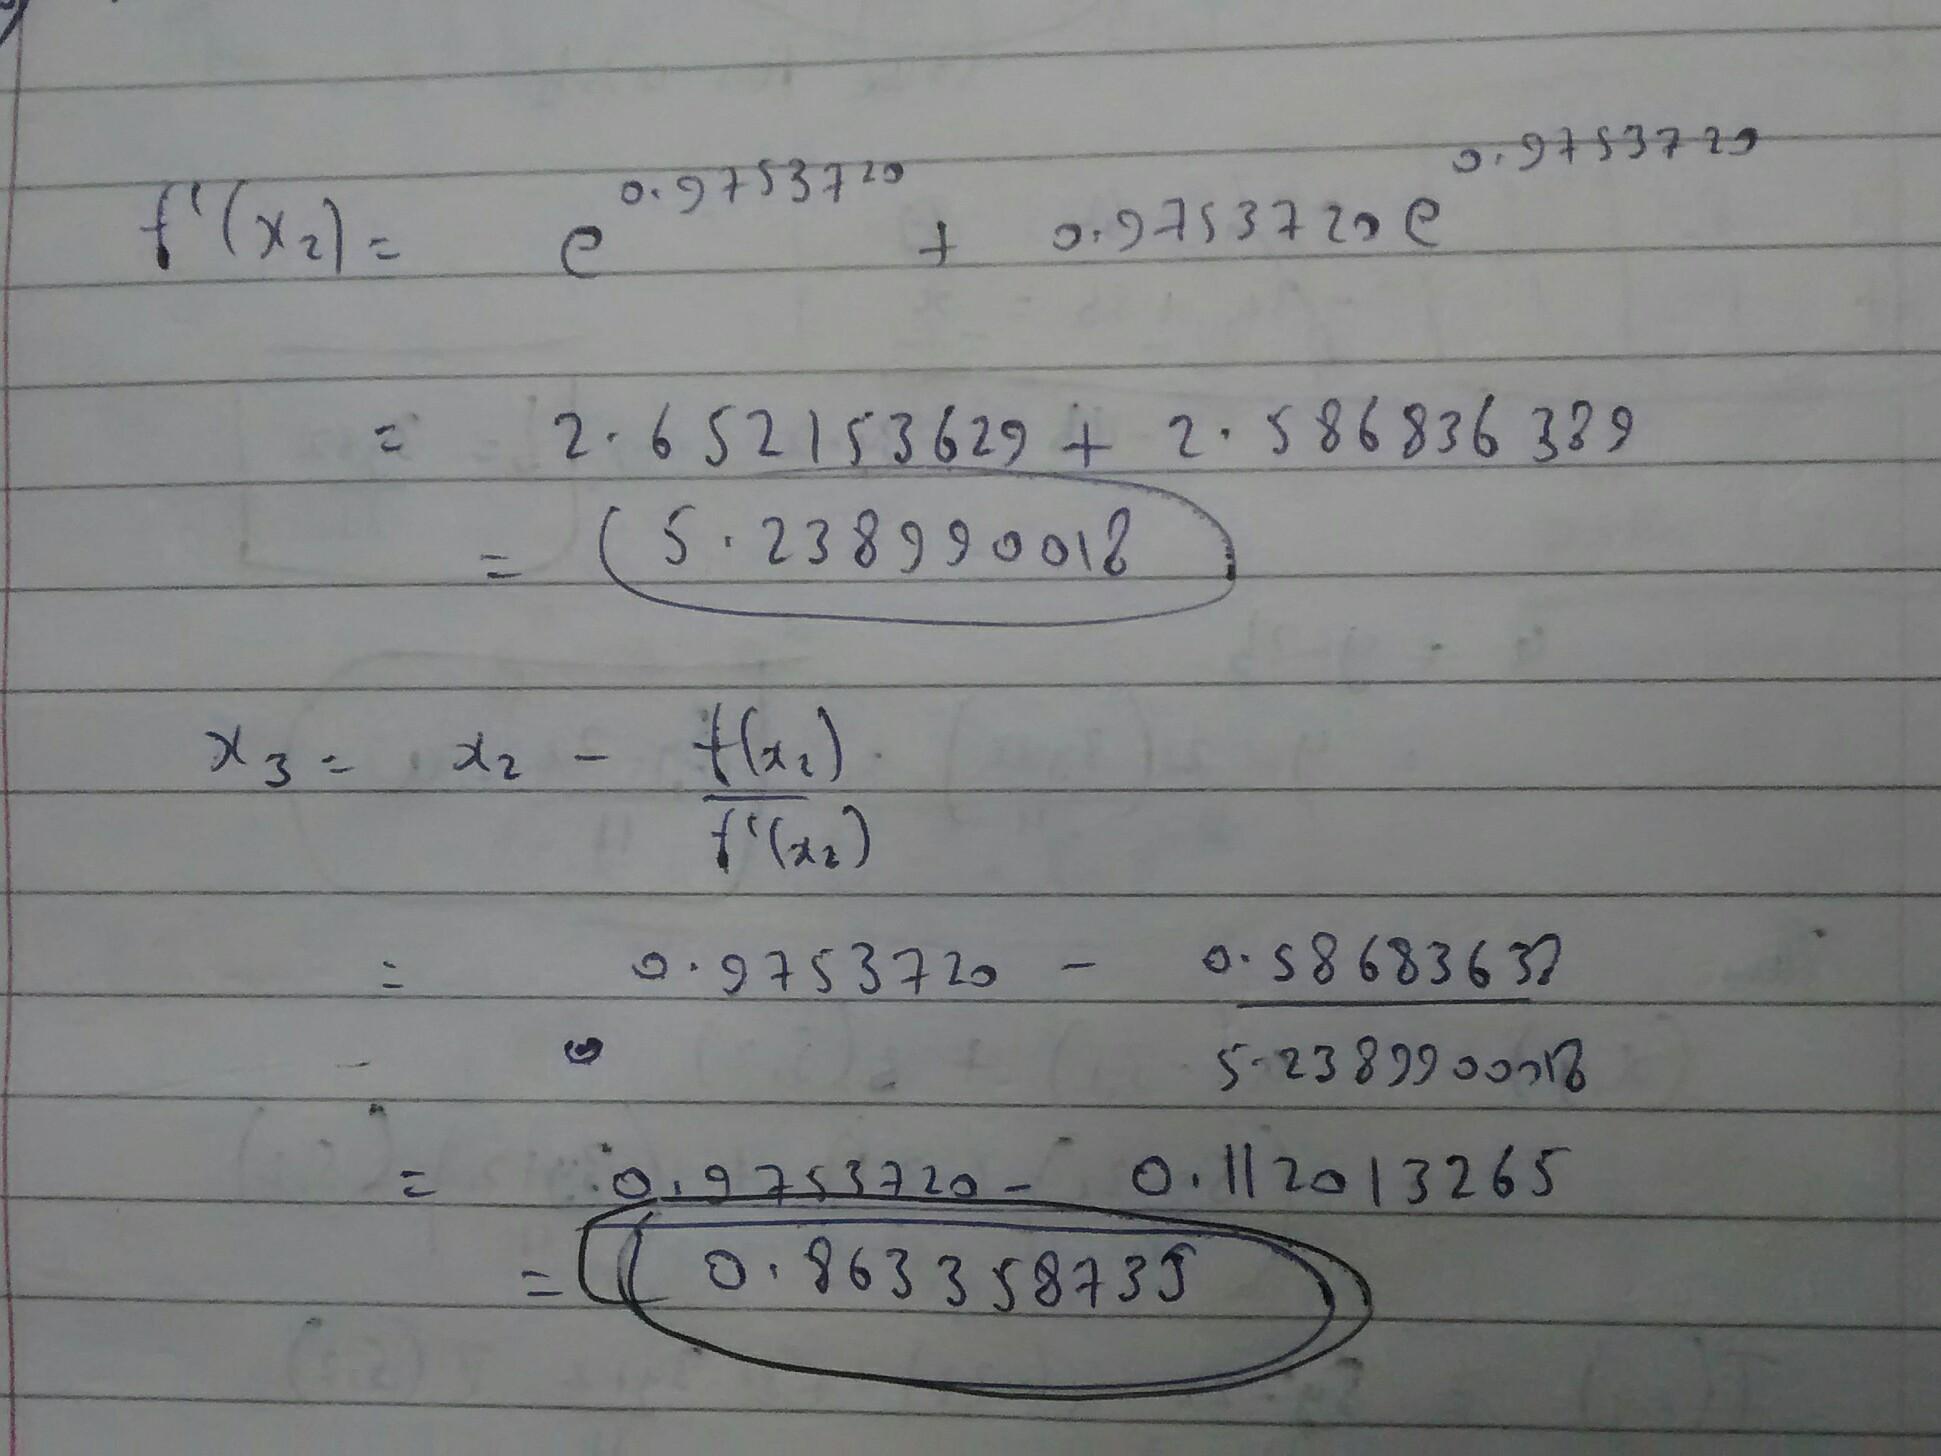 f'(x₂) = e^0.9753720 + 0.9753720 e^0.9753720
= 2.652153629 + 2.586836389
= 5.238990018
x₃ = x₂ - f(x₂)
f'(x₂)
= 0.9753720 - 0.58683638
5.2389900018
= 0.9753720 - 0.112013265
= 0.863358735